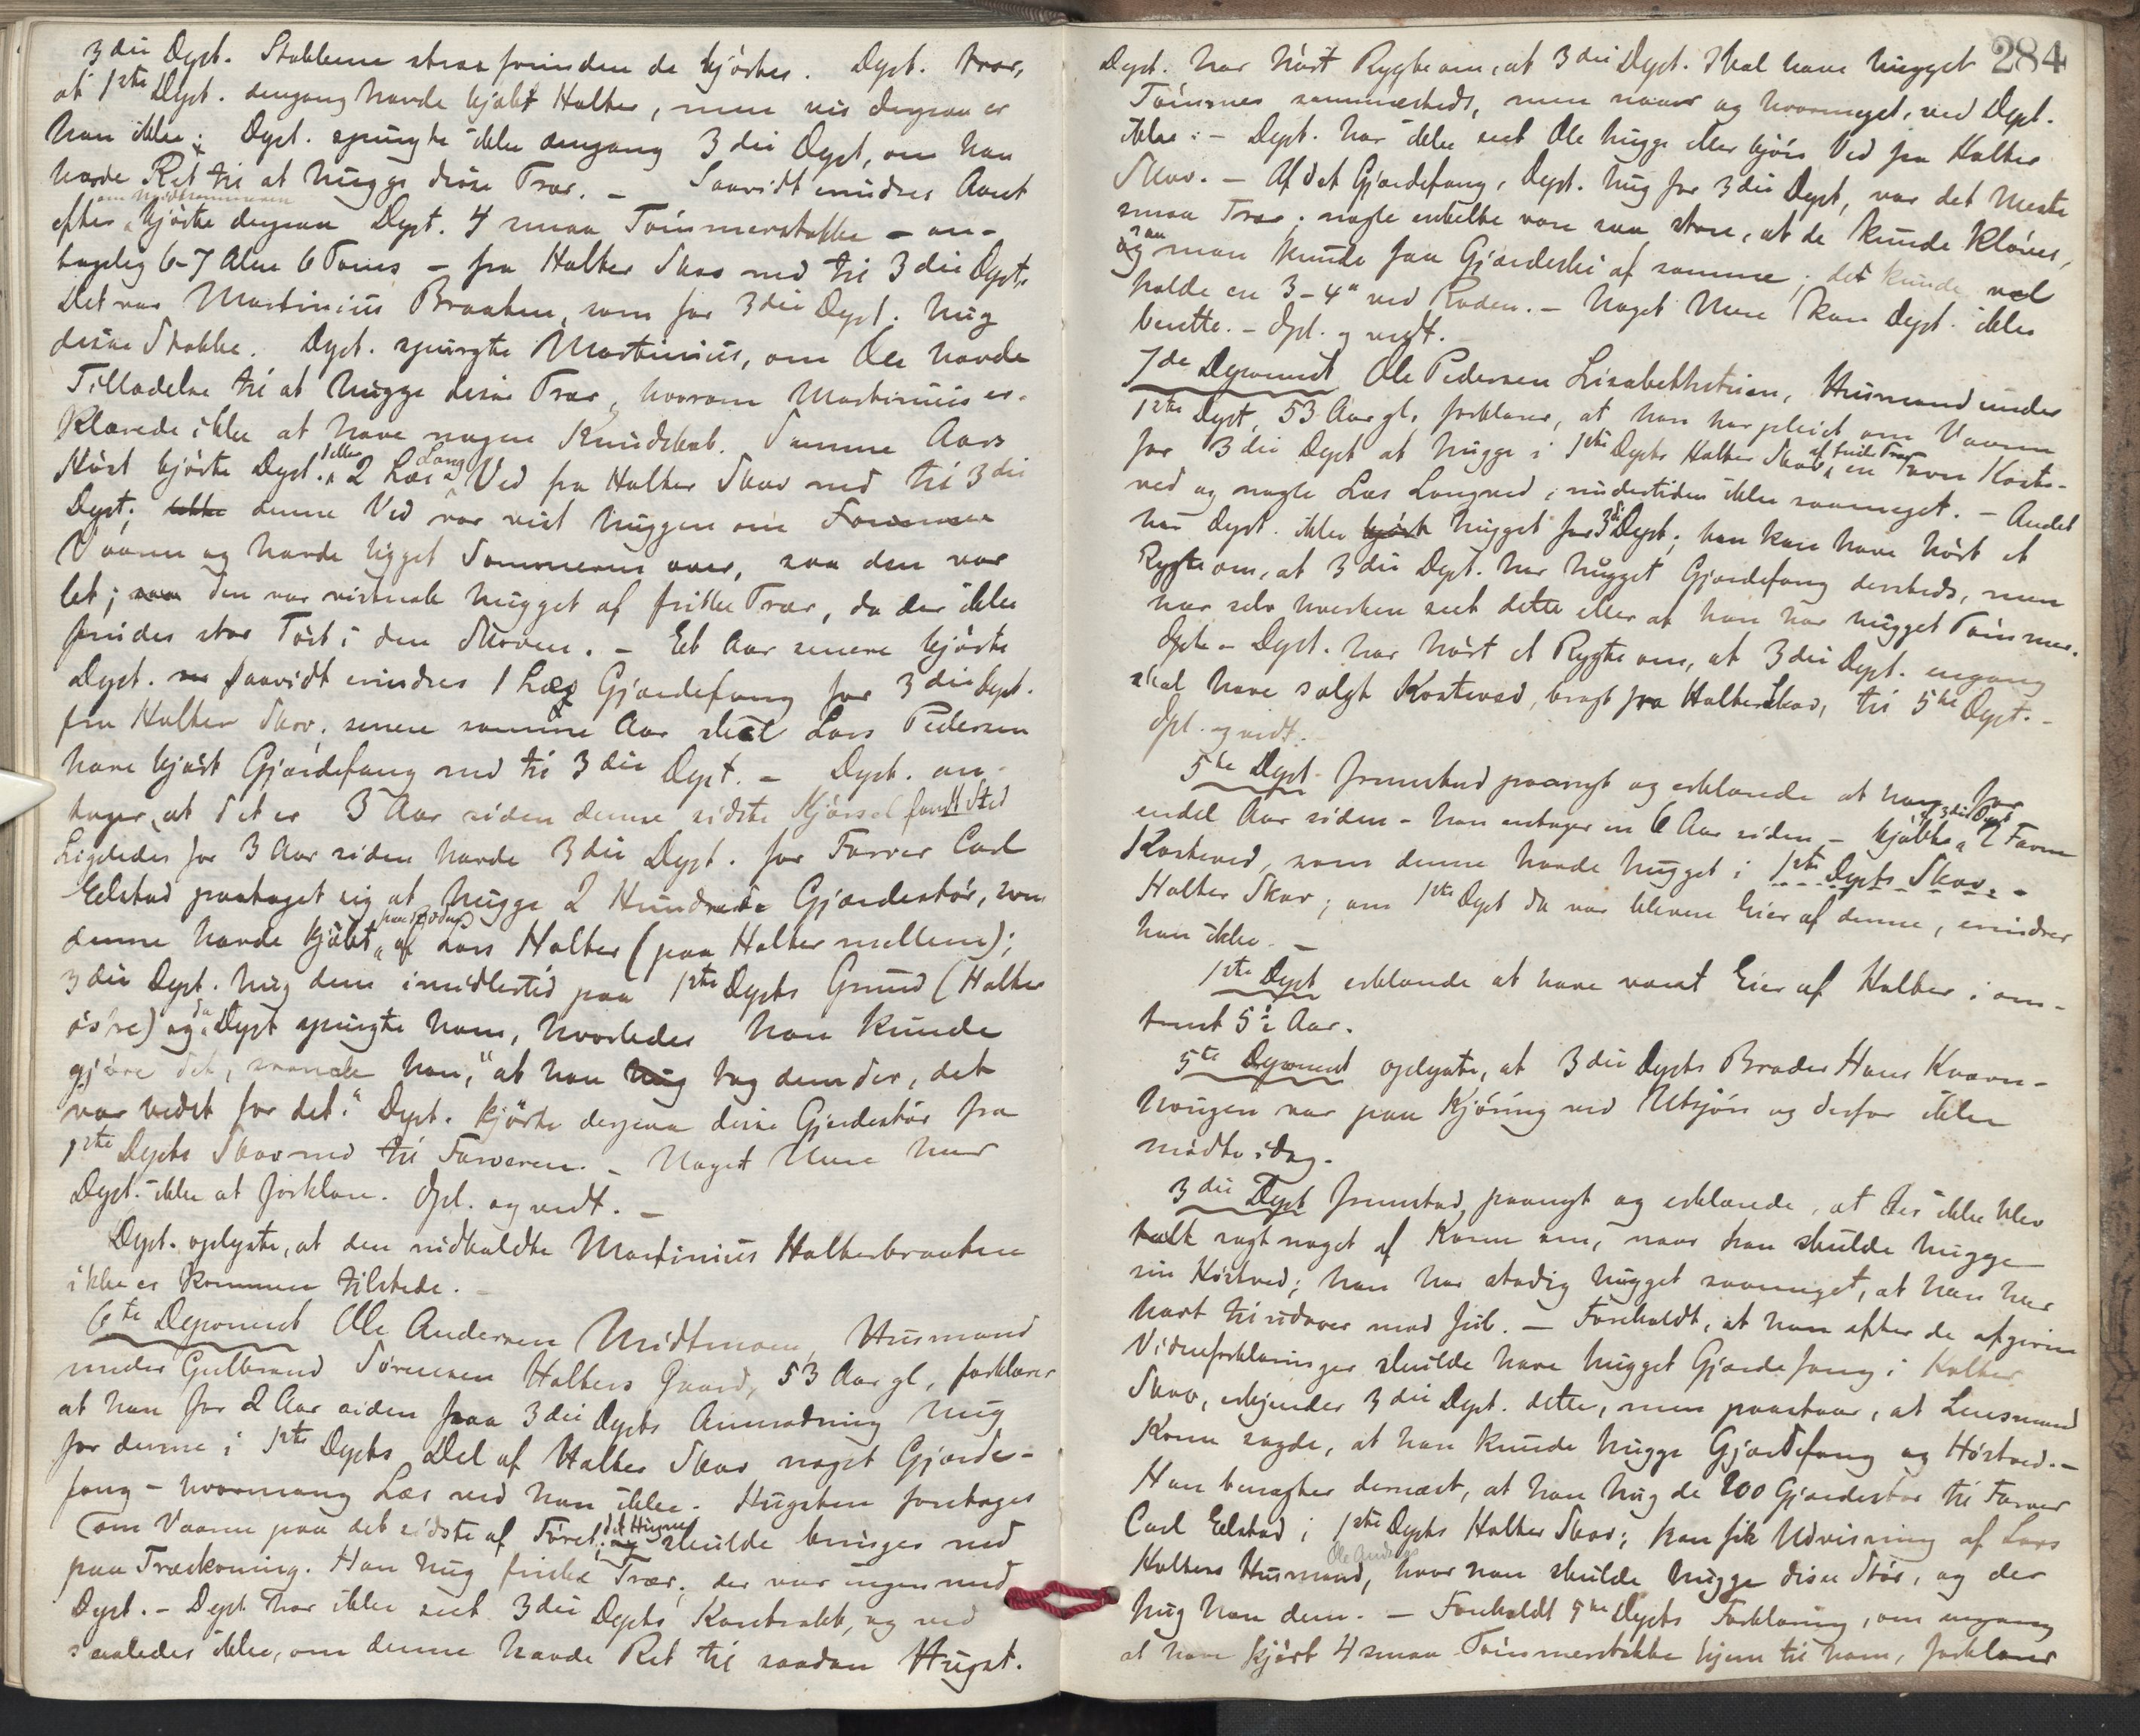 3die Dept. Stokkene strax forinden de kjørtes. Dept. tror,
at 1ste Dept. dengang havde kjøbt Halker, men vis derpaa er
han ikke; Dept. spurgte ikke dengang 3die Dept, om han
havde Ret til at hugge disse Trær. – Saavidt erindres Aaret
efter, om Midtsommeren kjørte derpaa Dept. 4 smaa Tømmerstokke – an-
tagelig 6-7 Alen 6 Toms – fra Halker Skov ned til 3die Dept.
Det var Martinius Braaten, som for 3die Dept. hug
disse Stokke. Dept. spurgte Martinius, om Ole havde
Tilladelse til at hugge disse Trær, hvorom Martinius er-
klærede ikke at have nogen Kundskab. Samme Aars
Høst kjørte Dept. 1 eller 2 Læs Lang Ved fra Halker Skov ned til 3die
Dept; denne Ved var vist huggen om
Vaaren og havde ligget Sommeren over, saa den var
let; den var vistnok hugget af friske Trær, da der ikke
findes stor Tørt i den Skoven. – Et Aar senere kjørte
Dept. saavidt erindres 1 Læs Gjærdefang for 3die Dept.
fra Halker Skov; senere samme Aar skal Lars Pedersen
have kjørt Gjærdefang ned til 3die Dept. – Dept. an-
tager, at det er 3 Aar siden denne sidste Kjørsel fandt Sted
Ligeledes for 3 Aar siden havde 3die Dept. for Farver Carl
Eelstad paataget sig at hugge 2 Hundrede Gjærdestør, som
denne havde kjøbt paa Roden af Lars Halker (paa Halker mellem);
3die Dept. hug dem imidlertid paa 1ste Depts Grund (Halker
østre) og da Dept spurgte ham, hvorledes han kunde
gjøre det, svarede han, "at han tog dem der, det
var vedst for det." Dept. kjørte derpaa disse Gjerdestør fra
1ste Depts Skov ned til Farveren. – Noget Mere har
Dept. ikke at forklare. Opl. og vedt. –
Dept. oplyste, at den indkaldte Martinius Halkerbraaten
ikke er kommen tilstede. –
6te Deponent Ole Andersen Midtmoen, Husmand
under Gulbrand Sørensen Halkers Gaard, 53 Aar gl, forklarer
at han for 2 Aar siden paa 3die Depts Anmodning hug
for denne i 1ste Depts Del af Halker Skov noget Gjærde-
fang – hvormang Læs ved han ikke. Hugsten foretoges
om Vaaren paa det sidste af Føret; det Hugne skulde bringes ned
paa Trækoning. Han hug friske Trær; der var ingen med
Dept. – Dept har ikke seet 3die Depts Kontrakt, og ved
saaledes ikke, om denne havde Ret til saadan Hugst.
284
Dept. har hørt Rygte om, at 3die Dept. skal have hugget
Tømmer sammesteds, men naar og hvormeget, ved Dept.
ikke. – Dept. har ikke seet Ole hugge eller kjøre Ved fra Halker
Skov. – Af det Gjærdefang, Dept. hug for 3die Dept, var det Meste
smaa Trær; nogle enkelte vare saa store, at de kunde kløves,
saa man kunde faa Gjærdeski af samme; det kunde vel
holde en 3-4" ved Roden. – Noget Mere kan Dept. ikke
berette. – Opl. og vedt.
7de Deponent Ole Pedersen Lisabethstuen, Husmand under
1ste Dept, 53 Aar gl, forklarer, at han har pleiet om Vaaren
for 3die Dept at hugge i 1ste Depts Halker Skov, af friske Trær en Favn Kaste-
ved og nogle Læs Langved, undertiden ikke saameget. – Andet
har Dept. ikke hugget for 3die Dept; han kan have hørt et
Rygte om, at 3die Dept. har hugget Gjærdefang dersteds, men
har selv hverken seet dette eller at han har hugget Tømmer.
Opl. – Dept. har hørt et Rygte om, at 3die Dept. engang
skal have solgt Kasteved, bragt fra Halkerskov, til 5te Dept. –
Opl. og vedt.
5te Dept. fremstod paanyt og erklærede at han for
endel Aar siden – han antager en 6 Aar siden – kjøbte af 3die Dept 2 Favne
Kasteved, som denne havde hugget i 1ste Depts Skov. –
Halker Skov; om 1ste Dept da var bleven Eier af denne, erindrer
han ikke. –
1ste Dept erklærede at have været Eier af Halker i om-
trent 5½ Aar.
5te Deponent oplyste, at 3die Depts Broder Hans Kværn-
haugen var paa Kjøring ved Utsjøn og derfor ikke
mødte idag.
3die Dept fremstod paanyt og erklærede, at der ikke blev
sagt noget af Korm om, naar han skulde hugge
sin Høstved; han har stadig hugget saameget, at han har
havt til udover mod Jul. – Foreholdt, at han efter de afgivne
Vidneforklaringer skulde have hugget Gjærdefang i Halker
Skov, erkjender 3die Dept. dette, men paastaar, at Lensmand
Korm sagde, at han kunde hugge Gjærdefang og Høstved. –
Han benægter dernæst, at han hug de 200 Gjærdestør til Farver
Carl Eelstad i 1ste Depts Halker Skov; han fik Udvisning af Lars
Halkers Husmand, Ole Anders hvor han skulde hugge disse Stør, og der
hug han dem. – Foreholdt 5te Depts Forklaring, om engang
at have kjørt 4 smaa Tømmerstokke hjem til ham, forklarer